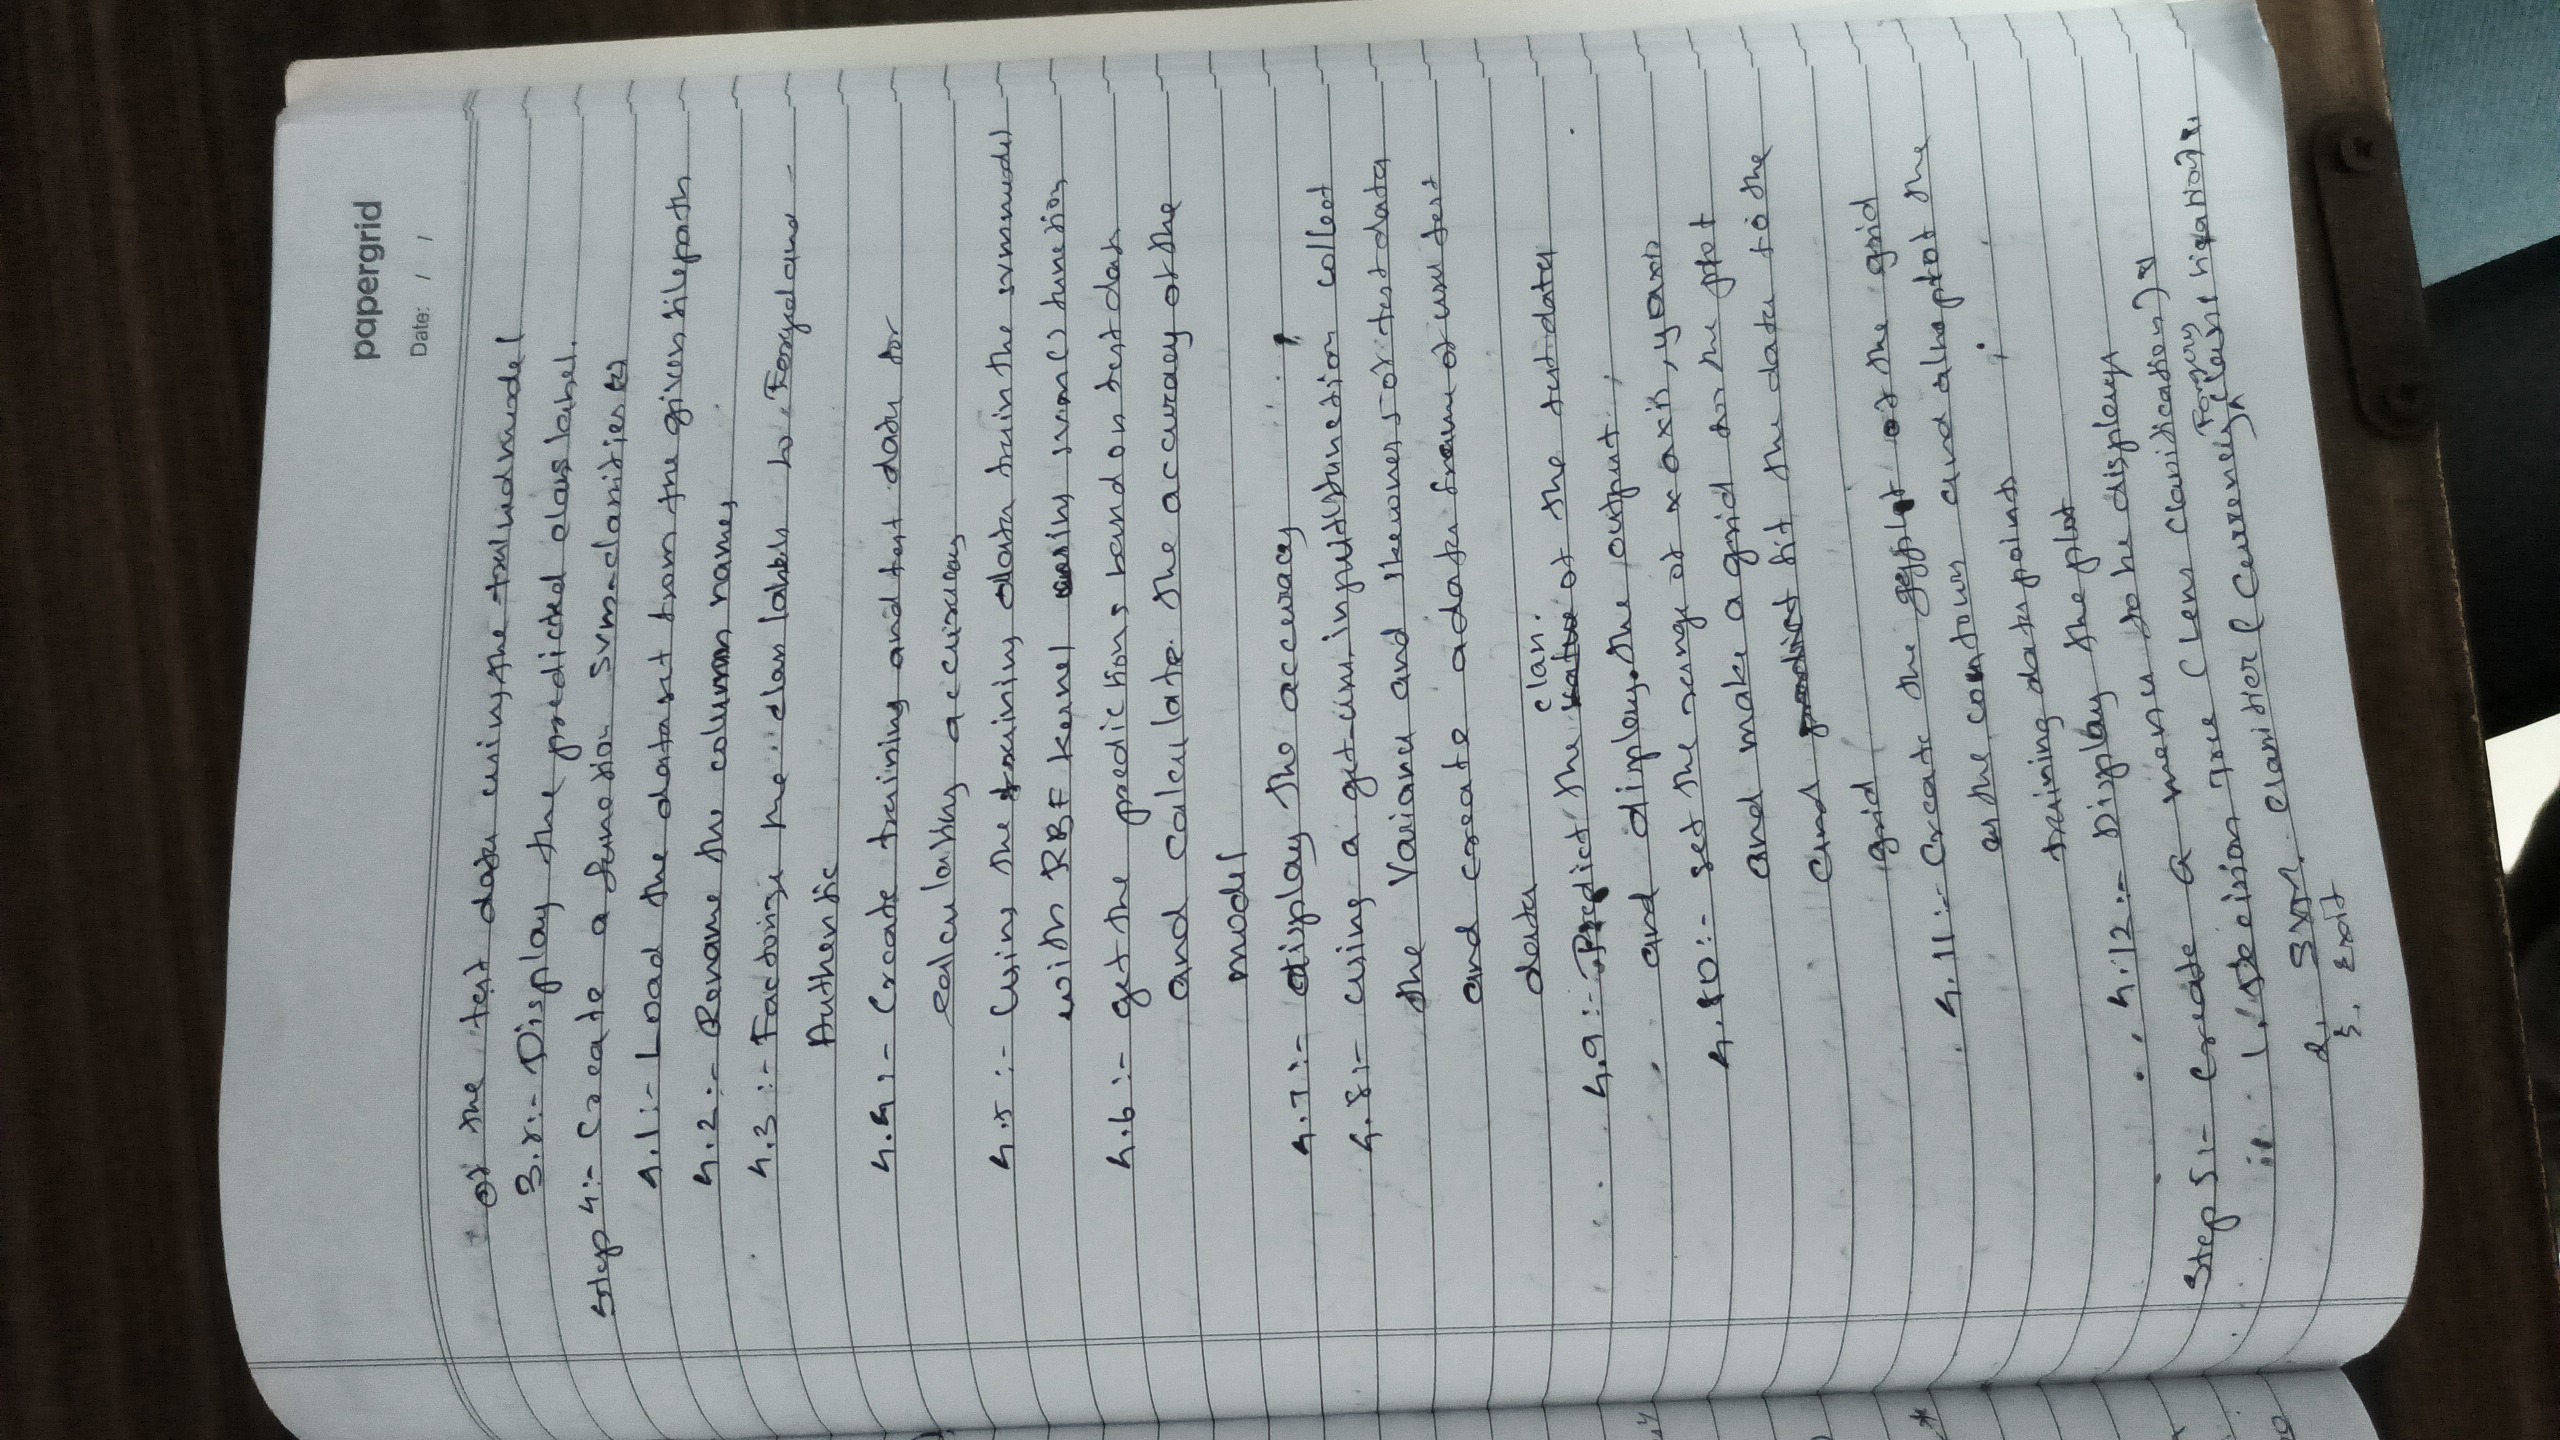 papergrid
Date: / /
of the test data using the trained model
3.8:- Display the predicted class label.
Step 4:- Create a function svm-classifier()
4.1:- Load the dataset from the given filepath
4.2:- Rename the column names
4.3:- Factorize the class labels to Forged and
Authentic
4.4:- Create training and test data for
calculating accuracy
4.5:- Using the training data train the svmmodel
with RBF kernel using svm() function
4.6:- get the predictions based on test data
and calculate the accuracy of the
model
4.7:- display the accuracy
4.8:- using a get-uni-input() function collect
the Variance and skewness of test data
and create a data frame of uni test
data
class
4.9:- Predict the of the test data
and display the output
4.10:- set the range of x axis, y axis
and make a grid for the plot
and fit the data to the
grid
4.11:- Create the of the grid
as the contours and also plot the
training data points
4.12:- Display the plot
Step 5:- Create a menu to be displayed
1. Decision Tree (Lens Classification)
Forgery
2. SVM classifier (Currency Classification)
3. Exit